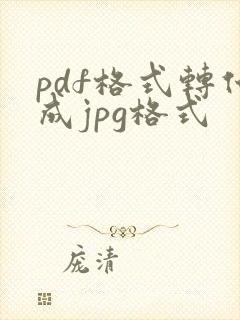 pdf格式轉化
成jpg格式
庞清